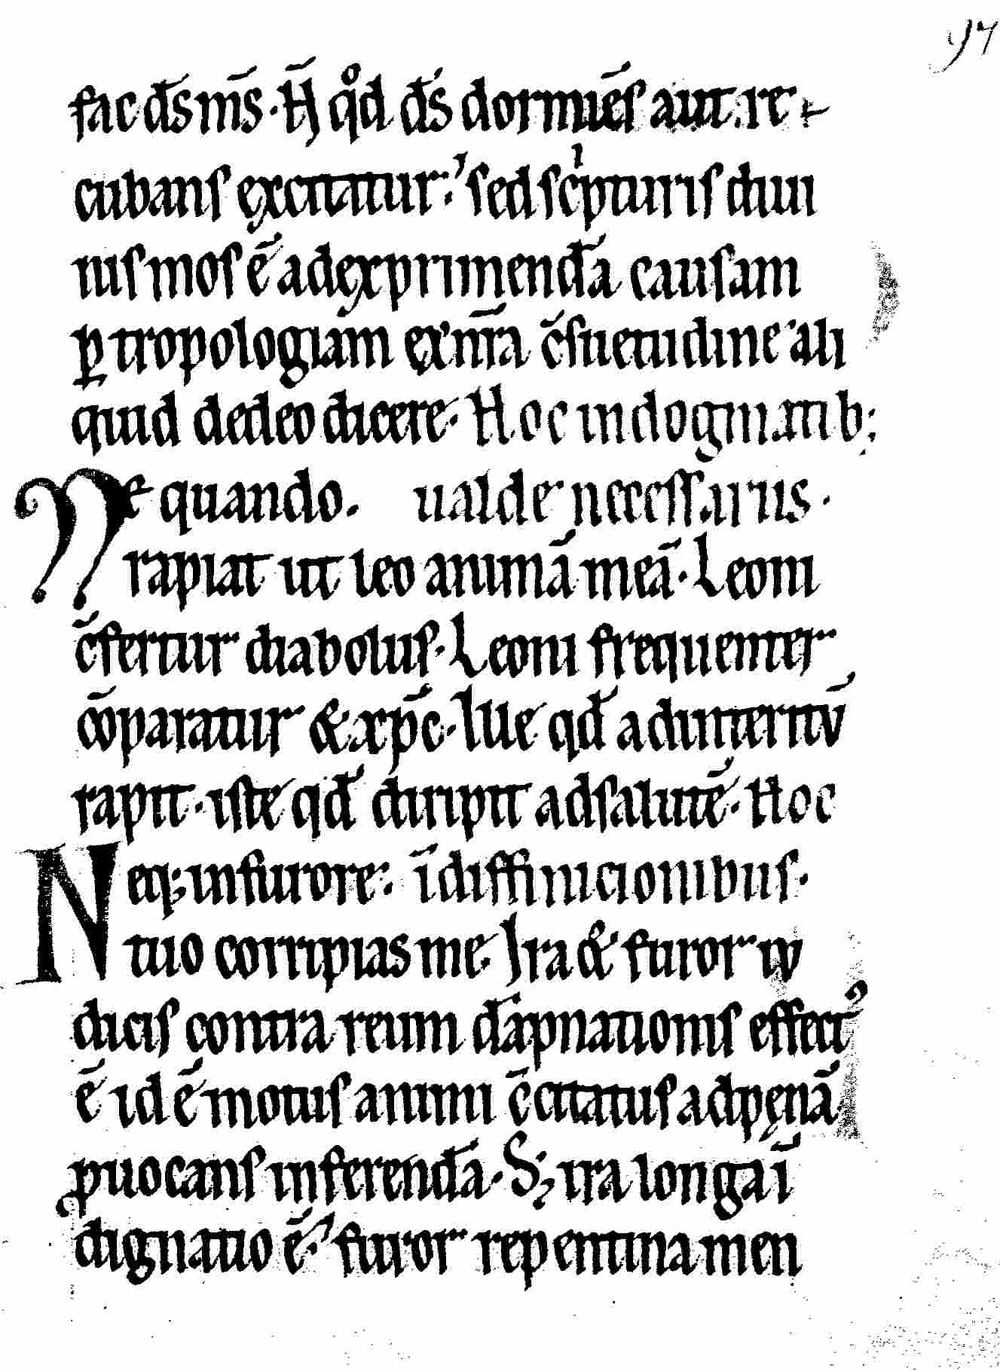 97
fac ds̄ ms̄. N̄ qd̊ ds̄ dormiēs aut re
cubans excitatur? sed scͥpturis diui
nis mos ē ad exprimendā causam
ꝑ tropologiam ex nr̄a c̄suetudine ali
quid de deo dicere. Hoc in dogmatib;
Ne quando. ualde necessarius.
rapiat ut leo animā meā. Leoni
c̄fertur diabolus. Leoni frequenter
cōparatur & xp̄c. Ille qd̄ ad interitū
rapit. iste qd̄ diripit ad salutē. Hoc
Neq; in furore. ī diffinicionibus.
tuo corripias me. Ira & furor iu
dicis contra reum dāpnationis effectꝰ
ē id ē motus animi c̄citatus ad pęnā
ꝓuocans inferendā. S; ira longa ī
dignatio ē. furor repentina men